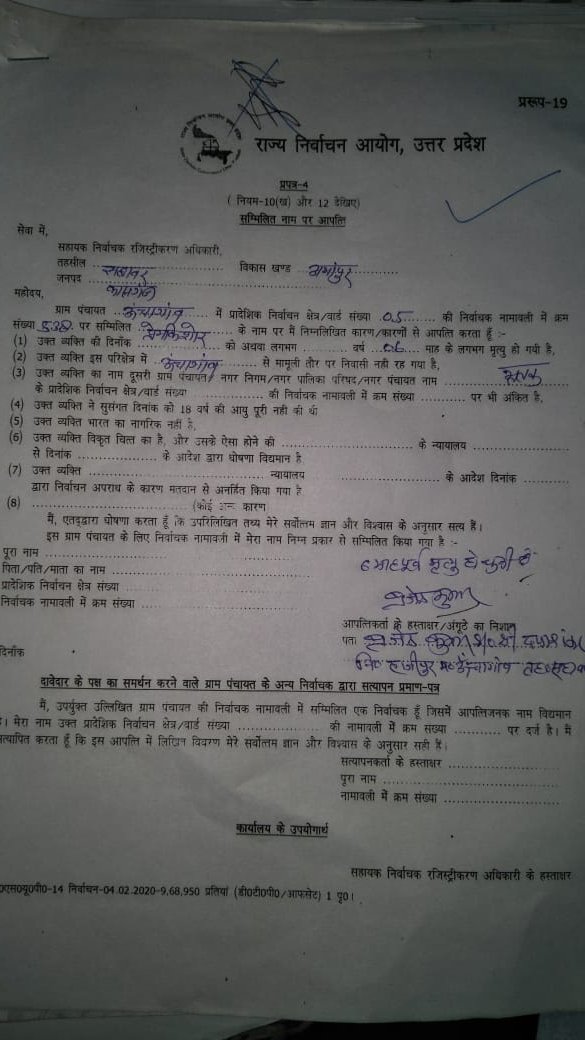 प्ररूप-19
राज्य निर्वाचन आयोग, उत्तर प्रदेश
प्रपत्र-4
( नियम-10(ख) और 12 देखिए)
सम्मिलित नाम पर आपत्ति
सेवा में,
सहायक निर्वाचक रजिस्ट्रीकरण अधिकारी,
तहसील सहावर विकास खण्ड अमांपुर
जनपद कासगंज
महोदय,
ग्राम पंचायत में प्रादेशिक निर्वाचन क्षेत्र/वार्ड संख्या 05 की निर्वाचक नामावली में क्रम
संख्या पर सम्मिलित के नाम पर मैं निम्नलिखित कारण/कारणों से आपत्ति करता हूँ :-
(1) उक्त व्यक्ति की दिनाँक को अथवा लगभग वर्ष 06 माह के लगभग मृत्यु हो गयी है,
(2) उक्त व्यक्ति इस परिक्षेत्र में से मामूली तौर पर निवासी नही रह गया है,
(3) उक्त व्यक्ति का नाम दूसरी ग्राम पंचायत/ नगर निगम/नगर पालिका परिषद/नगर पंचायत नाम मृतक
के प्रादेशिक निर्वाचन क्षेत्र/वार्ड संख्या की निर्वाचक नामावली में क्रम संख्या पर भी अंकित है,
(4) उक्त व्यक्ति ने सुसंगत दिनांक को 18 वर्ष की आयु पूरी नही की थी
(5) उक्त व्यक्ति भारत का नागरिक नही है,
(6) उक्त व्यक्ति विकृत चित्त का है, और उसके ऐसा होने की के न्यायालय
से दिनांक के आदेश द्वारा घोषणा विद्यमान है
(7) उक्त व्यक्ति न्यायालय के आदेश दिनांक
द्वारा निर्वाचन अपराध के कारण मतदान से अनर्हित किया गया है
(8) (कोई अन्य कारण
मैं, एतद्द्वारा घोषणा करता हूँ कि उपरिलिखित तथ्य मेरे सर्वोत्तम ज्ञान और विश्वास के अनुसार सत्य है।
इस ग्राम पंचायत के लिए निर्वाचक नामावली में मेरा नाम निम्न प्रकार से सम्मिलित किया गया है :-
पूरा नाम
6 माह पूर्व मृत्यु हो चुकी है
पिता/पति/माता का नाम
प्रादेशिक निर्वाचन क्षेत्र संख्या
निर्वाचक नामावली में क्रम संख्या
कुमार
आपत्तिकर्ता के हस्ताक्षर/अंगूठे का निशान
पता कुमार
दिनाँक
दावेदार के पक्ष का समर्थन करने वाले ग्राम पंचायत के अन्य निर्वाचक द्वारा सत्यापन प्रमाण-पत्र
मैं, उपर्युक्त उल्लिखित ग्राम पंचायत की निर्वाचक नामावली में सम्मिलित एक निर्वाचक हूँ जिसमें आपत्तिजनक नाम विद्यमान
है। मेरा नाम उक्त प्रादेशिक निर्वाचन क्षेत्र/वार्ड संख्या की नामावली में क्रम संख्या पर दर्ज है। मैं
सत्यापित करता हूँ कि इस आपत्ति में लिखित विवरण मेरे सर्वोत्तम ज्ञान और विश्वास के अनुसार सही हैं।
सत्यापनकर्ता के हस्ताक्षर
पूरा नाम
नामावली में क्रम संख्या
कार्यालय के उपयोगार्थ
सहायक निर्वाचक रजिस्ट्रीकरण अधिकारी के हस्ताक्षर
0एस0यू0पी0-14 निर्वाचन-04.02.2020-9,68,950 प्रतियां (डी0टी0पी0/आफसेट) 1 पृ0।